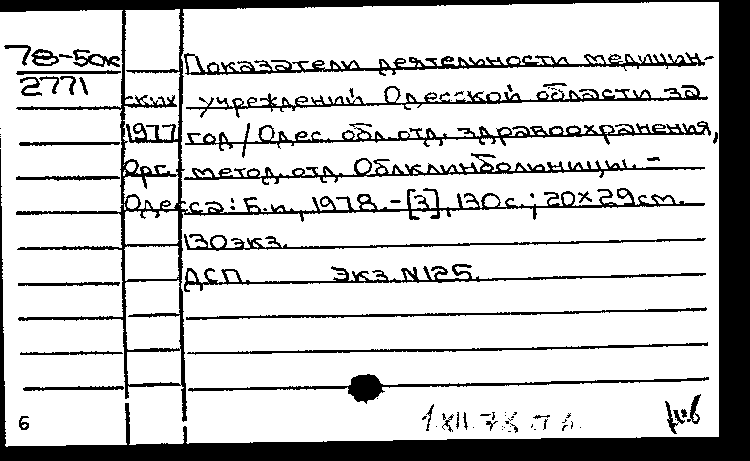 78-50к Показатели деятельности медицин-
2771
ских учреждений Одесской области за
1977 год / Одес. обл. отд. здравоохранения,
Орг.-метод. отд. Облклинбольницы. -
Одесса: Б.и., 1978. - [3], 130 с.; 20×29 см.
130 экз.
ДСП. Экз. N125.
6 1 XII.78